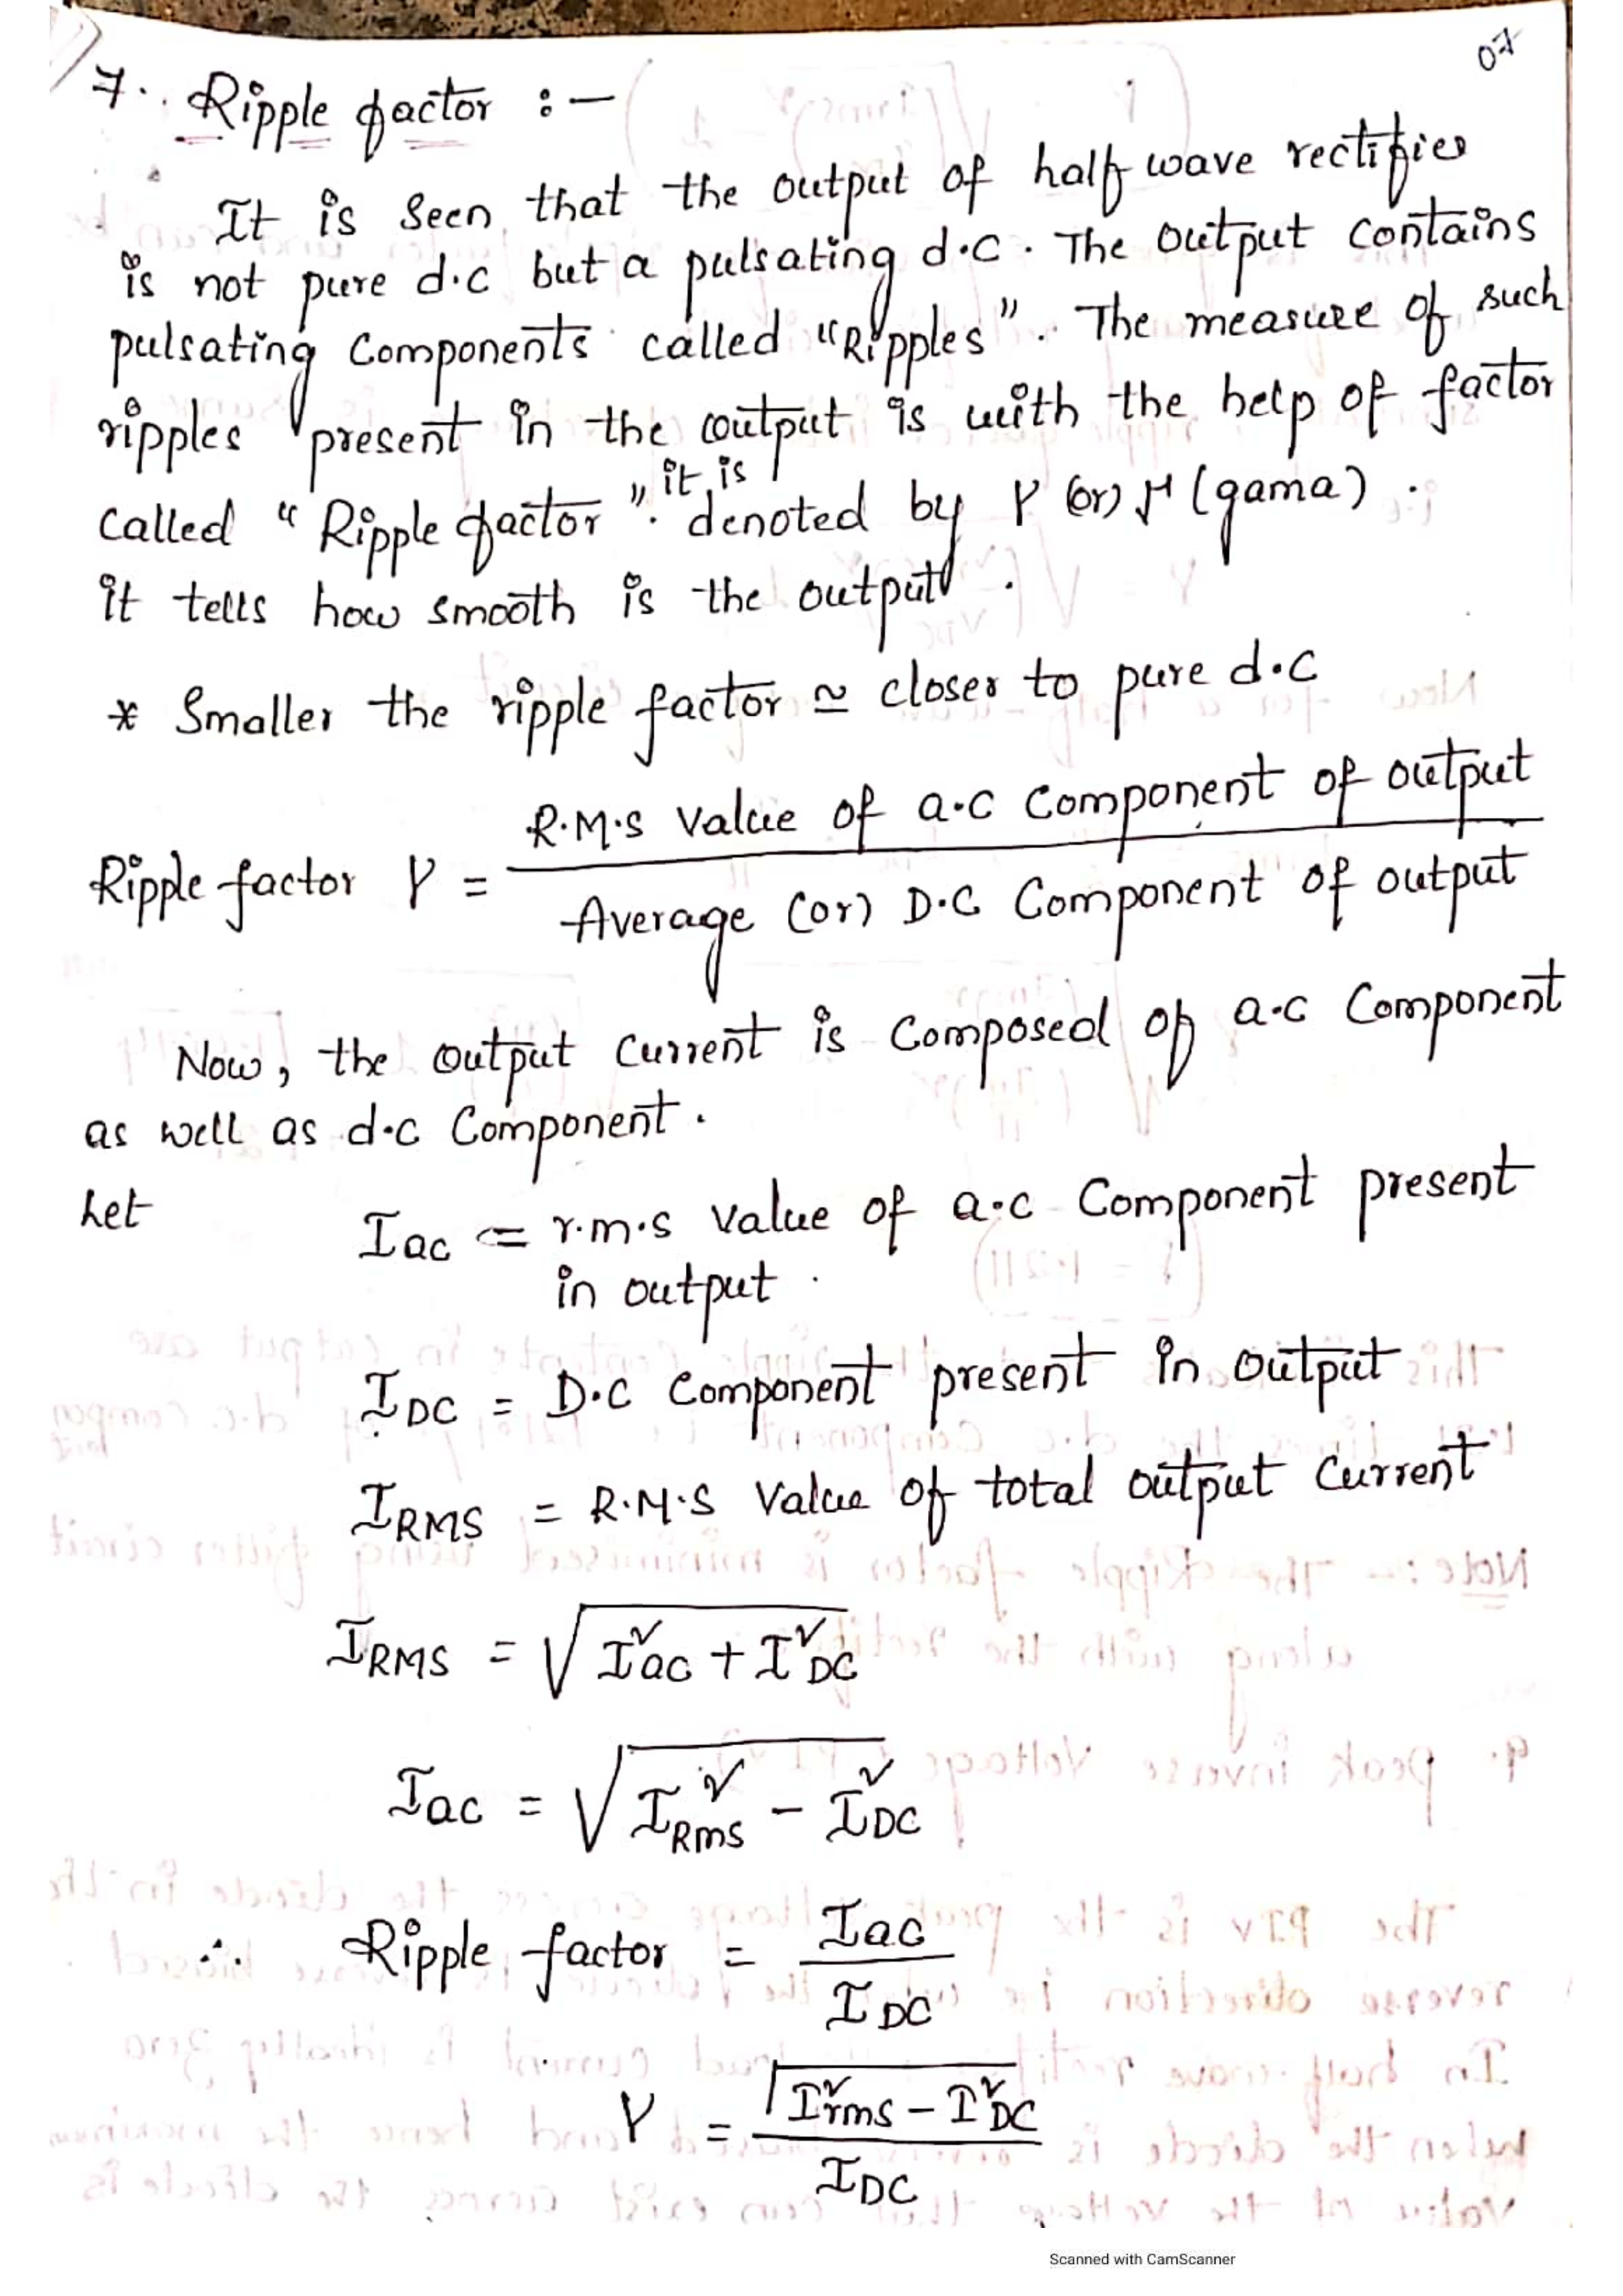 07
7. Ripple factor :-
It is seen that the output of half wave rectifier
is not pure d.c but a pulsating d.c. The output contains
pulsating components called "Ripples". The measure of such
ripples present in the output is with the help of factor
called "Ripple factor". it is denoted by γ (or) (gama).
it tells how smooth is the output.
* Smaller the ripple factor ≃ closer to pure d.c
Ripple factor γ = R.M.S Value of a.c Component of output / Average (or) D.C Component of output
Now, the output current is composed of a.c component
as well as d.c Component.
Let Iac = r.m.s value of a.c Component present
in output.
IDC = D.C Component present in output
IRMS = R.M.S Value of total output current
IRMS = √(I²ac + I²DC)
Iac = √(I²Rms - I²DC)
∴ Ripple factor = Iac / IDC
γ = √(I²rms - I²DC) / IDC
Scanned with CamScanner